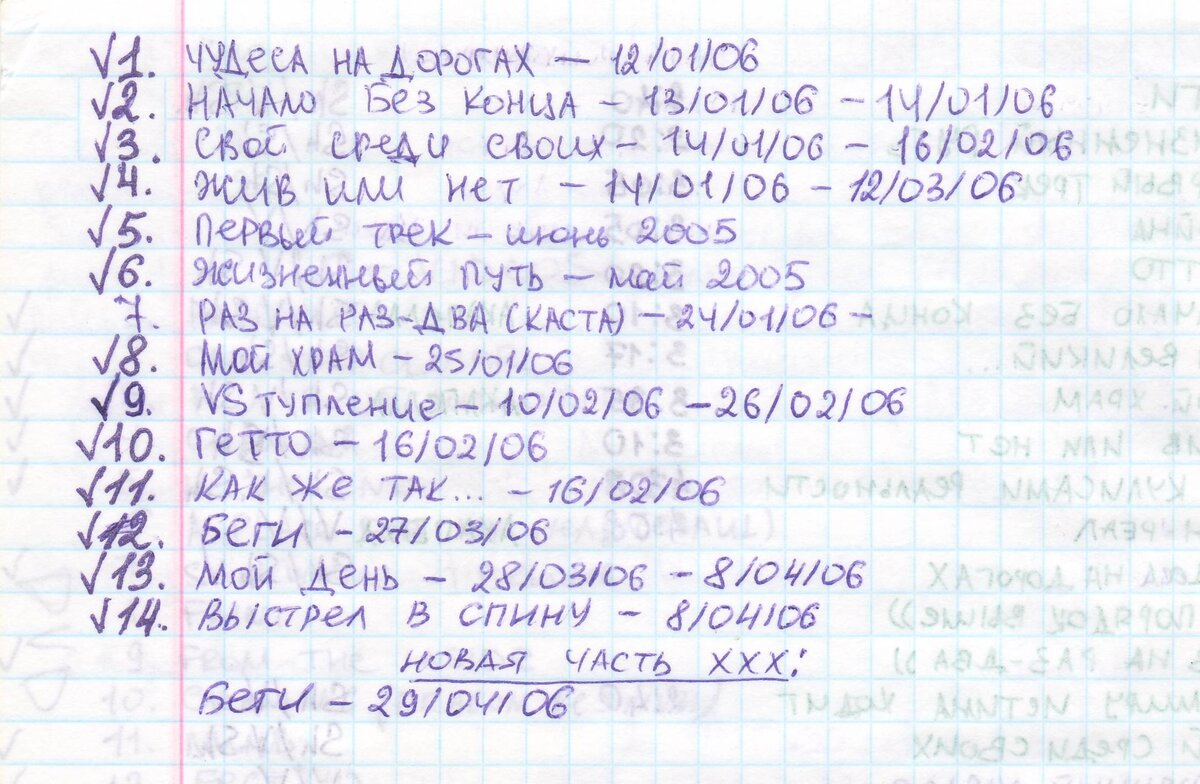 √1. ЧУДЕСА НА ДОРОГАХ — 12/01/06
√2. НАЧАЛО БЕЗ КОНЦА – 13/01/06 – 14/01/06
√3. СВОЙ СРЕДИ СВОИХ – 14/01/06 – 16/02/06
√4. ЖИВ ИЛИ НЕТ – 14/01/06 – 12/03/06
√5. ПЕРВЫЙ ТРЕК – ИЮНЬ 2005
√6. ЖИЗНЕННЫЙ ПУТЬ – МАЙ 2005
7. РАЗ НА РАЗ-ДВА (КАСТА) – 24/01/06 –
√8. МОЙ ХРАМ – 25/01/06
√9. VSТУПЛЕНИЕ – 10/02/06 – 26/02/06
√10. ГЕТТО – 16/02/06
√11. КАК ЖЕ ТАК... – 16/02/06
√12. БЕГИ – 27/03/06
√13. МОЙ ДЕНЬ – 28/03/06 – 8/04/06
√14. ВЫСТРЕЛ В СПИНУ – 8/04/06
НОВАЯ ЧАСТЬ XXX!
БЕГИ – 29/04/06